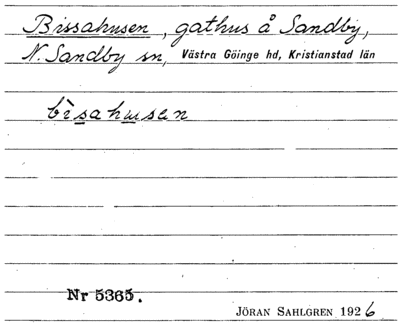 Bissahusen, gathus å Sandby,
N. Sandby sn, Västra Göinge hd, Kristianstad län
bìsahusen
Nr 5365.
JÖRAN SAHLGREN 1926